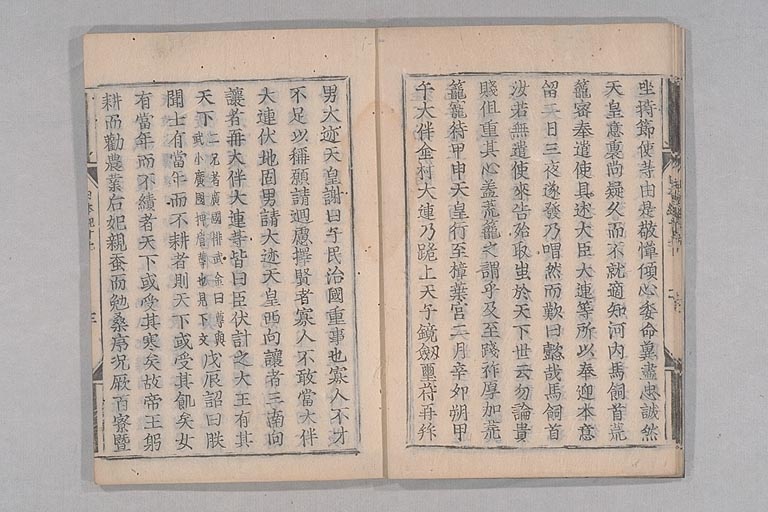 坐持節使等由是敬憚傾心委命冀盡忠誠然
天皇意裏尚疑久而不就適知河内馬飼首荒
籠密奉遣使具述大臣大連等所以奉迎本意
留二日三夜遂發乃喟然而歎曰懿哉馬飼首
汝若無遣使來告殆取蚩於天下世云勿論貴
賤但重其心盖荒籠之謂乎及至踐祚厚加荒
籠寵待甲申天皇行至樟葉宮二月辛卯朔甲
午大伴金村大連乃跪上天子鏡劔璽符再拜
男大迹天皇謝曰子民治國重事也寡人不才
不足以稱願請迴慮擇賢者寡人不敢當大伴
大連伏地固請男大迹天皇西向讓者三南向
讓者再大伴大連等皆曰臣伏計之大王有其
天下
戊辰詔曰朕
聞士有當年而不耕者則天下或受其飢矣女
有當年而不績者天下或受其寒矣故帝王躬
耕而勸農業后妃親蚕而勉桑序况厥百寮曁